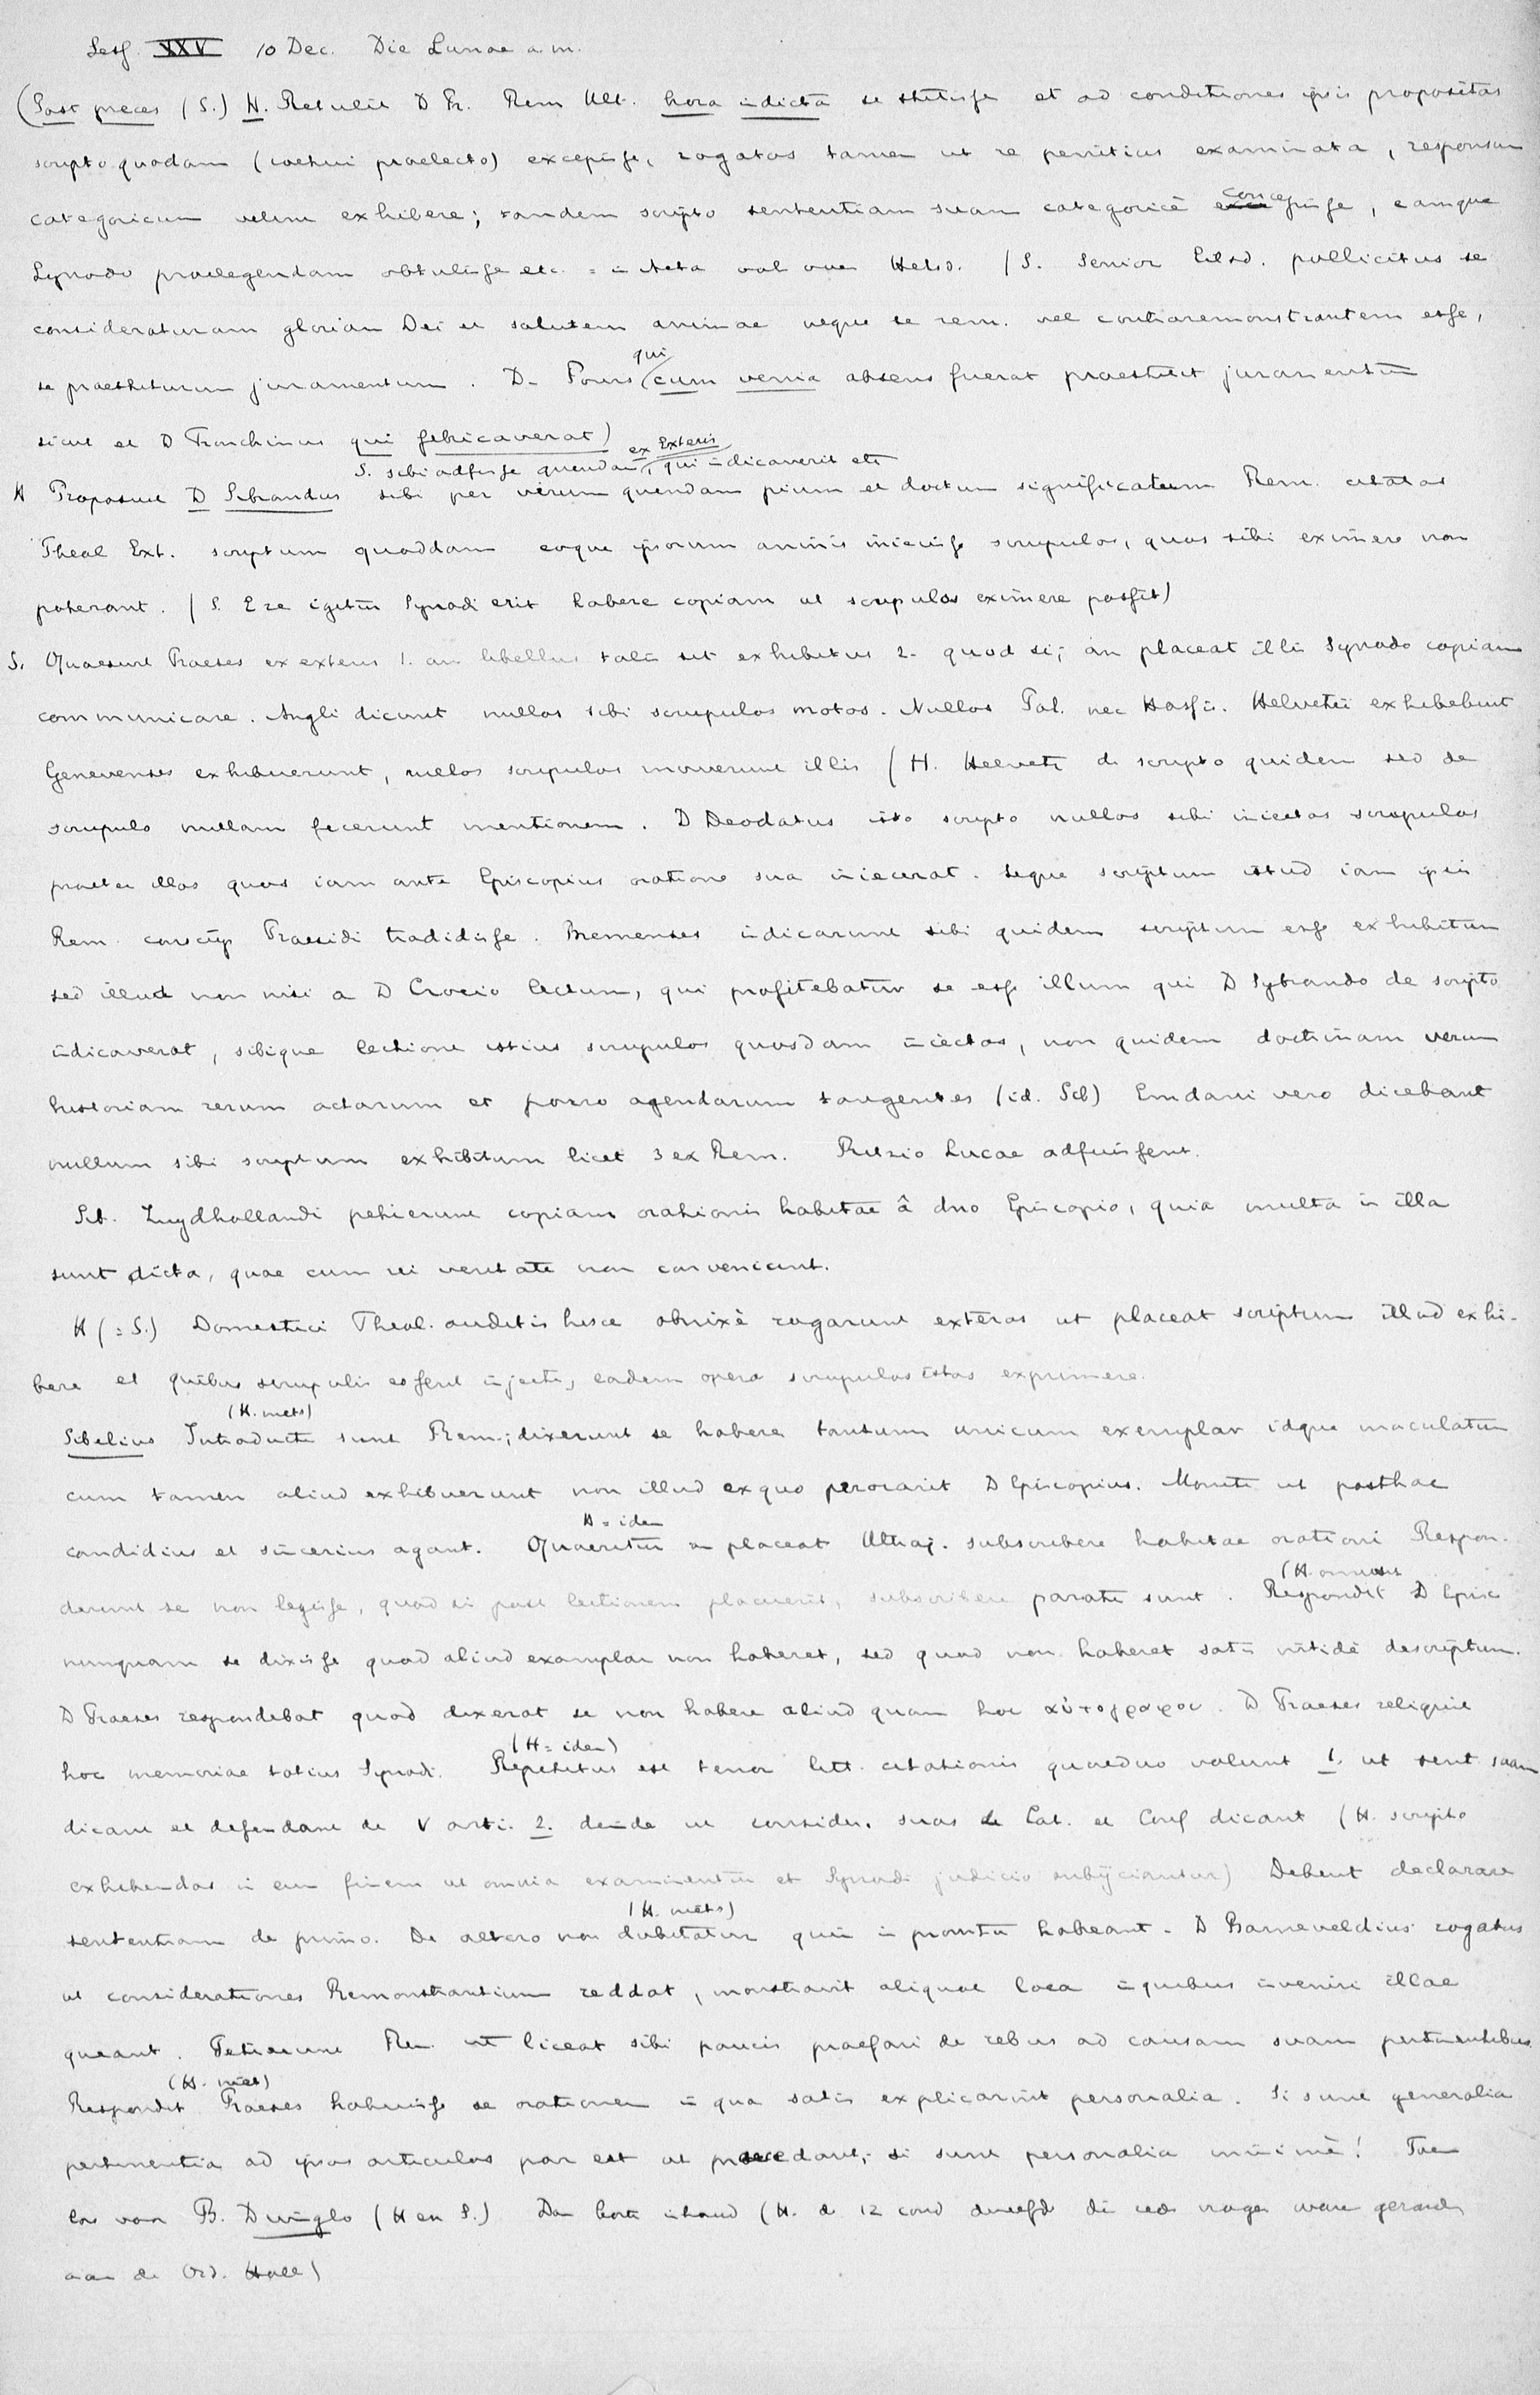 Sess. XXV 10 Dec. Die Lunae a.m.
(Post preces (S.) H. Retulit D Pr. Rem Ult. hora indicta se stitisse et ad conditiones ipsis propositas
scripto quodam (coetui praelecto) excepisse, rogatos tamen ut re penitius examinata, responsum
categoricum velint exhibere; tandem scripto sententiam suam categoricè concepisse, eamque
Synodo praelegendam obtulisse etc. = in Acta (S. Senior pollicitus se
consideraturum gloriam Dei et salutem animae neque se rem. vel contraremonstrantem esse,
se praestiturum juramentum. D. Pours qui cum venia absens fuerat praestitit juramentū
sicut et D Tronchinus qui febricaverat)
S. sibi adfuisse quendam ex Exteris, qui indicaverit etc
H Proposuit D Sibrandus sibi per virum quendam pium et doctum significatum Rem. citatos
Theol Ext. scriptum quoddam eoque ipsorum animis iniecisse scrupulos, quos sibi eximere non
poterant. (S. E re igitur Synodi erit habere copiam ut scrupulos eximere possit)
S. Quaesivit Praeses ex exteris 1. an libellus talis sit exhibitus 2. quod si; an placeat illis Synodo copiam
communicare. Angli dicunt nullos sibi scrupulos motos. Nullos Pal. nec Hassi. Helvetii exhibebunt
Genevenses exhibuerunt, nullos scrupulos moverunt illis (H. Helvetii de scripto quidem sed de
scrupulo nullam fecerunt mentionem. D Deodatus isto scripto nullos sibi iniectos scrupulos
praeter illos quos iam ante Episcopius oratione sua iniecerat. seque scriptum istud iam ipsis
Rem. Praesidi tradidisse. Bremenses indicarunt sibi quidem scriptum esse exhibitum
sed illud non nisi a D Crocio lectum, qui profitebatur se esse illum qui D Sybrando de scripto
indicaverat, sibique lectione istius scrupulos quosdam iniectos, non quidem doctrinam verum
historiam rerum actarum et porro agendarum tangentes (id. Sib) Emdani vero dicebant
nullum sibi scriptum exhibitum licet 3 ex Rem. Ritzio Lucae adfuissent.
Sib. Zuydhollandi petierunt copiam orationis habitae â dno Episcopio, quia multa in illa
sunt dicta, quae cum rei veritate non conveniunt.
H (= S.) Domestici Theol. auditis hisce obnixè rogarunt exteros ut placeat scriptum illud exhi-
bere et quibus scrupulis essent injecti, eadem opera scrupulos istos exprimere.
(H. niets)
Sibelius Introducti sunt Rem.; dixerunt se habere tantum unicum exemplar idque maculatum
cum tamen aliud exhibuerunt non illud ex quo perorarit D Episcopius. Moniti ut posthac
H = idem
candidius et sincerius agant. Quaeritur an placeat Ultraj. subscribere habitae orationi Respon-
(H. omisit
derunt se non legisse, quod si post lectionem placuerit, subscribere parati sunt. Respondit D Episc
nunquam se dixisse quod aliud exemplar non haberet, sed quod non haberet satis nitidè descriptum.
D Praeses respondebat quod dixerat se non habere aliud quam hoc αὐτόγραφον. D Praeses reliquit
(H = idem)
hoc memoriae totius Synodi. Repetitus est tenor litt. citationis quae duo volunt 1. ut sent. suam
dicant et defendant de V arti. 2. deinde ut consider. suas de Cat. et Conf dicant (H. scripto
exhibendas in eum finem ut omnia examinentur et Synodi judicio subijciantur) Debent declarare
(H. niets)
sententiam de primo. De altero non dubitatur quin in promtu habeant. D Barneveldius rogatus
ut considerationes Remonstrantium reddat, monstravit aliquot loca in quibus inveniri illae
queant. Petierunt Rem. ut liceat sibi paucis praefari de rebus ad causam suam pertinentibus.
(H. niet)
Respondit Praeses habuisse se orationem in qua satis explicarint personalia. Si sunt generalia
pertinentia ad ipsos articulos par est ut procedant; si sunt personalia minimè! Toen
las voor B. Dwinglo (H en S.) Dan korte inhoud (H. de 12 cond dezelfde die reeds vroeger waren gezonden
aan de Ord. Holl)